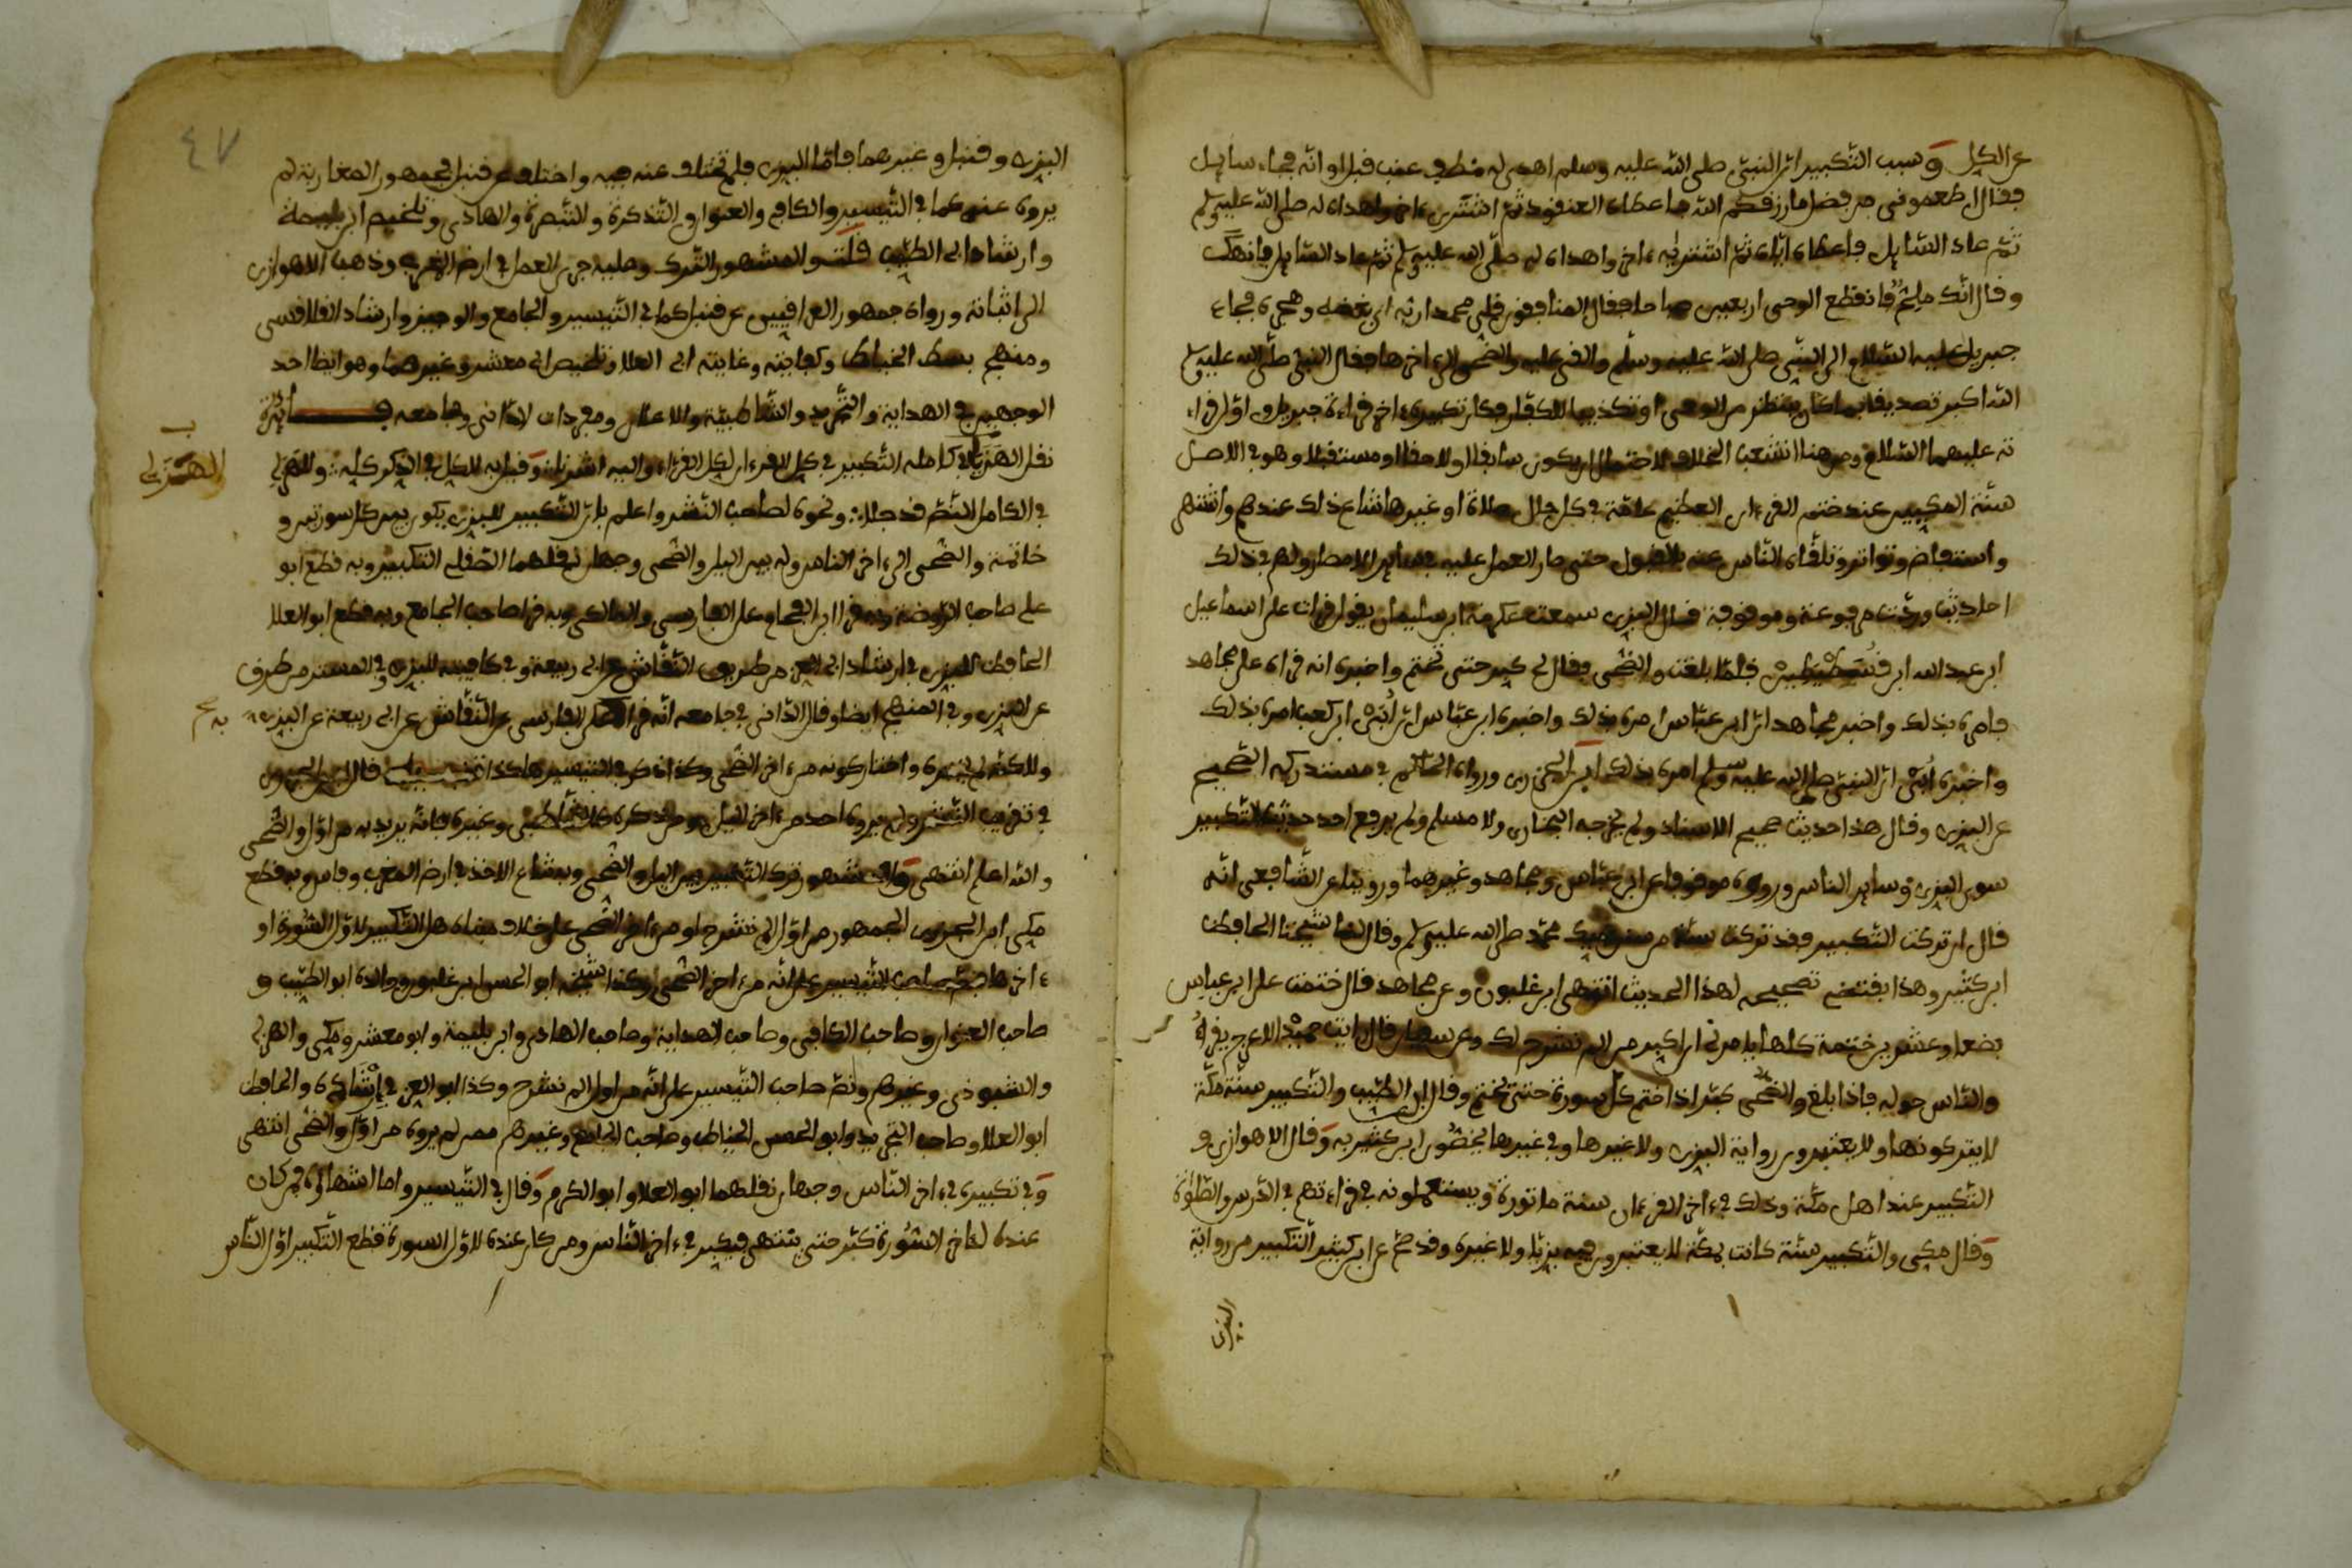 عن الكل وسبب التكبير ان النبي صلى الله عليه وسلم اهدي له قطف عنب قبل اوانه فجاء سايل
فقال اطعموني مما رزقكم الله فاعطاه العنقود ثم اشتري اخر واهداه له صلى الله عليه وسلم
ثم عاد السايل فاعطاه اياه ثم اشتريه اخر واهداه له صلى الله عليه وسلم ثم عاد السايل فانهك
وقال انك ملح فانقطع الوحي اربعين صباحا فقال المنافقون قلى محمدا ربه اي بغضه وهجره فجاء
جبريل عليه السلام الى النبي صلى الله عليه وسلم والقى عليه والضحى الى اخرها فقال النبي صلى الله عليه وسلم
الله اكبر تصديقا بما كان ينتظر من الوحي او تكذيبا للكفار فكان تكبيره اخر قراءة جبريل واول قراء
ته عليهما السلام ومن هنا انشعب الخلاف لاحتمال ان يكون سابقا او لاحقا او مستقبلا وهو في الاصل
سنة المكيين عند ختم القرءان العظيم عامة في كل حال صلاة او غيرها شاع ذلك عندهم واشتهر
واستفاض وتواتر وتلقاه الناس عنه بالقبول حتى صار العمل عليه في ساير الامصار ولهم في ذلك
احاديث وردت مرفوعة وموقوفة قال البزي سمعت عكرمة ابن سليمان يقول قرات على اسماعيل
ابن عبد الله ابن قسطنطين فلما بلغت والضحى فقال لي كبر حتى تختم واخبره انه قراه على مجاهد
فامره بذلك واخبر مجاهد ان ابن عباس امره بذلك واخبره ابن عباس ان ابي ابن كعب امره بذلك
واخبره ابي ان النبي صلى الله عليه وسلم امره بذلك ابن الجزري ورواه الحاكم في مستدركه الصحيح
عن البزي وقال هذا حديث صحيح الاسناد ولم يخرجه البخاري ولا مسلم ولم يرفع احد حديث التكبير
سوى البزي وساير الناس رووه موقوفا عن ابن عباس ومجاهد وغيرهما وروينا عن الشافعي انه
قال ان تركت التكبير فقد تركت سنة من سنن نبيك محمد صلى الله عليه وسلم وقال لنا شيخنا الحافظ
ابن كثير وهذا يقتضي تصحيحه لهذا الحديث انتهى ابن غلبون وعن مجاهد قال ختمت على ابن عباس
بضعا وعشرين ختمة كلها يامرني ان اكبر من الم نشرح لك وعن سفيان قال رايت حميد الاعرج يقرا
والناس حوله فاذا بلغ والضحى كبر اذا ختم كل سورة حتى يختم وقال ابن الطيب والتكبير سنة مكة
لا يتركونها ولا يعتبرون رواية البزي ولا غيرها وفي غيرها يخصون ابن كثير به وقال الاهوازي و
التكبير عند اهل مكة وذلك في اخر القرءان سنة ماثورة ويستعملونه في قراءتهم في الدرس والصلاة
وقال مكي والتكبير سنة كانت بمكة لا يعتبرون فيه بزيا ولا غيره وقد صح عن ابن كثير التكبير من رواية
البزي
٤٧
البزي وقنبل وغيرهما فاما البزي فلم يختلف عنه فيه واختلف عن قنبل فجمهور المغاربة لم
يروه عنه كما في التيسير والكافي والعنوان والتذكرة والتبصرة والهادي وتلخيص ابن بليمة
وارشاد ابي الطيب قلت والمشهور الترك وعليه جرى العمل في ارض المغرب وذهب الاهوازي
الى اثباته ورواه جمهور العراقيين عن قنبل كما في التيسير والجامع والوجيز وارشاد القلانسي
ومنهج سبط الخياط وكفايته وغايته ابي العلا وتلخيص ابي معشر وغيرهما وهو ايضا احد
الوجهين في الهداية والتجريد والشاطبية والاعلان ومفردات الداني وجامعه فايدة
نقل الهذلي في كامله التكبير في كل القرءان لكل القراء واليه اشرنا وقيل به للكل في الذكر كله وللهذلي
الهذلي
في الكامل النشر قد جلا ونحوه لصاحب النشر واعلم بان التكبير للبزي يكون بين كل سورتين و
خاتمة والضحى الى اخر الناس وله بين اليل والضحى وجهان نقلهما الصقلي التكبير وبه قطع ابو
على صاحب الروضة وبه قرا ابن الفحام على الفارسي والمالكي وبه قرا صاحب الجامع وبه قطع ابو العلا
الحافظ للبزي وفي ارشاد ابي العز من طريق النقاش عن ابي ربيعة وفي كفايته للبزي وفي المستنير من طرق
عن البزي وفي المنهج ايضا وقال الداني في جامعه انه قرا على الفارسي عن النقاش عن ابي ربيعة عن البزي
به
وللكثير لم يخيره واختار كونه من اخر الضحى وكذا ذكر في التيسير هكذا تنبيه قال ابن الجزري
في تقريب النشر ولم يروه احد من اخر اليل ومن ذكره كالشاطبي وغيره فانه يريد به من اول والضحى
والله اعلم انتهى والمشهور ترك التكبير بين اليل والضحى وبه شاع الاخذ في ارض المغرب وفاس وبه قطع
مكي ابن الجزري الجمهور من اول الم نشرح او من اخر الضحى على خلاف مبناه هل التكبير لاول السورة او
ءاخرها فنص صاحب التيسير على انه من ءاخر الضحى وكذا شيخه ابو الحسن ابن غلبون ووالده ابو الطيب و
صاحب العنوان وصاحب الكافي وصاحب الهداية وصاحب الهادي وابن بليمة وابو معشر ومكي والهذلي
والشنبوذي وغيرهم ونص صاحب التيسير على انه من اول الم نشرح وكذا ابو العز في ارشاده والحافظ
ابو العلا وصاحب التجريد وابو الحسن الخياط وصاحب الجامع وغيرهم ممن لم يروه من اول والضحى انتهى
وفي تكبيره في ءاخر الناس وجهان نقلهما ابو العلا وابو الكرم وقال في التيسير واما انتهاؤه فمن كان
عنده لاخر السورة كبر حتى ينتهي فيكبر في ءاخر الناس ومن كان عنده لاول السورة قطع التكبير اول الناس